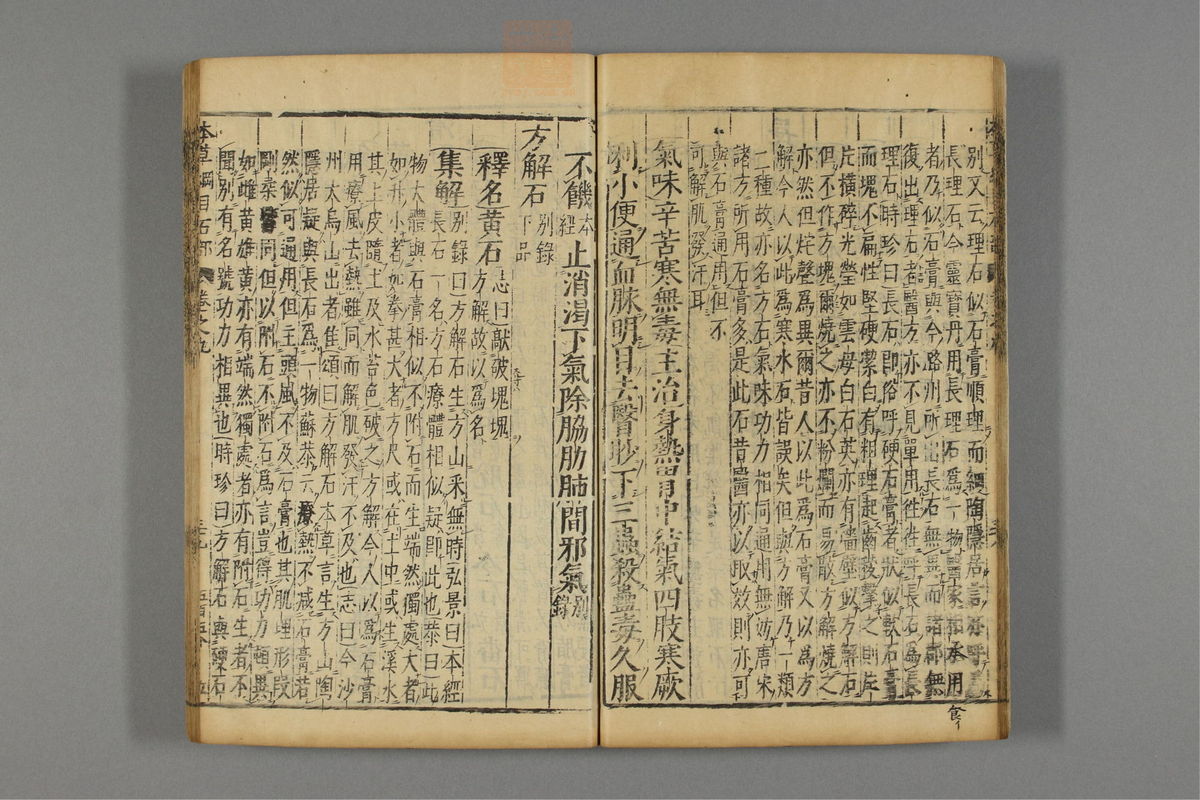 別又云理石似石膏順理而細陶隱居言
長理石今靈寶丹用長理石爲一物醫家相承用
者乃似石膏與今潞州所出長石無異而諸郡無
復出理石者醫方亦不見單用往往呼長石爲長
理石時珍曰長石即俗呼硬石膏者狀似軟石膏
而塊不扁性堅硬潔白有粗理起齒稜擊之則片
片橫碎光瑩如雲母白石英亦有墻壁似方解石
但不作方塊爾燒之亦不粉爛而易散方解燒之
亦然但烢聲爲異爾昔人以此爲石膏又以爲方
解今人以此爲寒水石皆誤矣但與方解乃一類
二種故亦名方石氣味功力相同通用無妨唐宋
諸方所用石膏多是此石昔醫亦以取效則亦可
與石膏通用但不
可解肌發汗耳
氣味辛苦寒無毒主治身熱胃中結氣四肢寒厥
利小便通血脉明目去瞖眇下三蟲殺蠱毒久服
食
不饑本經止消渴下氣除脇肋肺間邪氣別錄
方解石別錄下品
釋名黄石志曰敲破塊塊方解故以爲名
集解別錄曰方解石生方山采無時弘景曰本經
長石一名方石療體相似疑即此也恭曰此
物大體與石膏相似不附石而生端然獨處大者
如升小者如拳甚大者方尺或在土中或生溪水
其上皮隨土及水苔色破之方解今人以爲石膏
用療風去熱雖同而解肌發汗不及也志曰今沙
州大鳥山出者佳頌曰方解石本草言生方山陶
隱居疑與長石爲一物蘇恭云療熱不減石膏若
然似可通用但主頭風不及石膏也其肌理形段
剛柔皆同但以附石不附石爲言豈得功力頓異
如雌黄雄黄亦有端然獨處者亦有附石生者不
聞別有名號功力相異也時珍曰方解石與硬石
本草綱目石部 卷之九